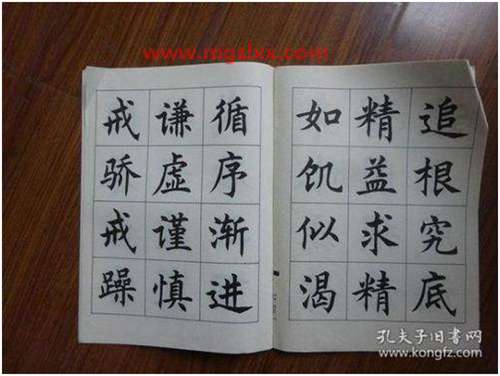 追根究底
精益求精
如饥似渴
循序渐进
谦虚谨慎
戒骄戒躁
孔夫子旧书网
www.kongfz.com